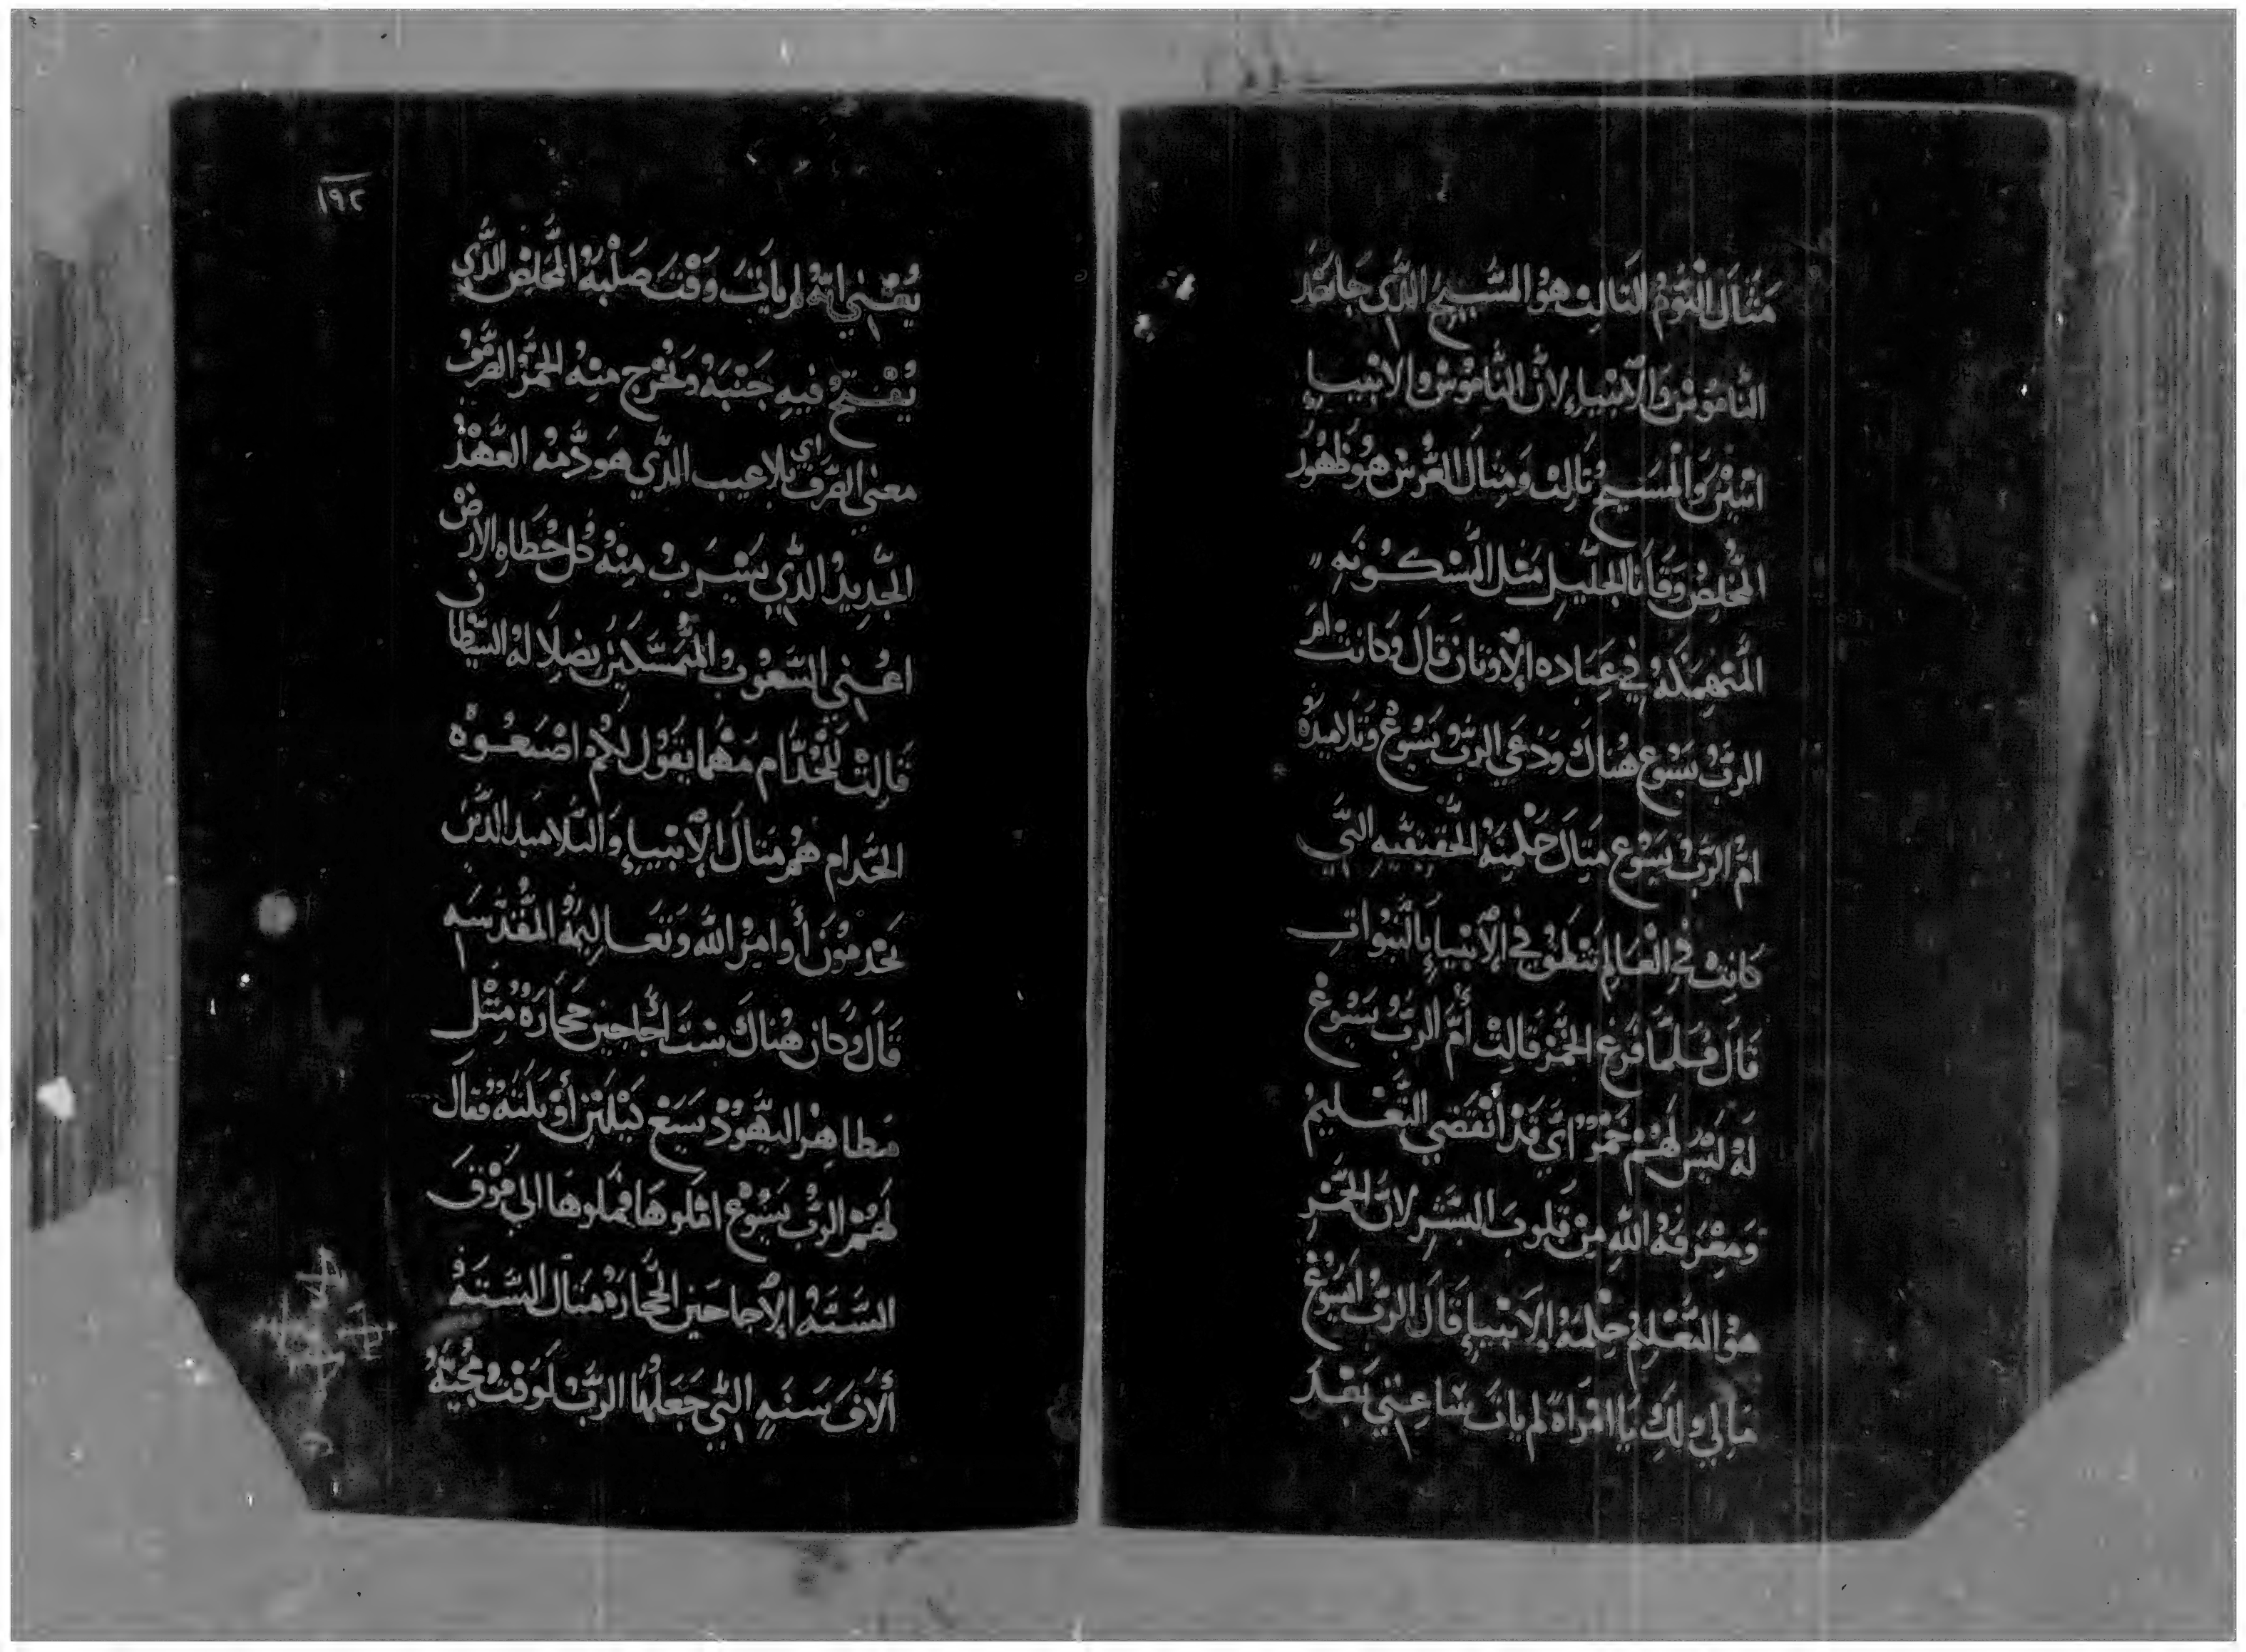 مَثَال اليَّوْمُ الثالِث هوَ المسِّيحُ الدَّي جا بَعْد
النّامُوسْ وَالأنبياءِ لأنَّ النَّامُوسْ والانبيا
اتنينْ وَالْمسَيحُ تَالِت وَمِتال العُرْس هُو ظهُور
المُخلِصْ وَقانا الجَليِل مَثل المسْكُونَهِ
المُنهمَكهُ في عِبَاده الأَوتان قال وَكانت اُم
الربُّ يسَوع هُناكَ وَدعَي الربُّ يَسُوعْ وَتلاميدُهُ
امُّ الرَّبُ يسَوع مِتال حكْمِتهُ الحَقيقيَّهِ التَّي
كانِتْ في الْعَالِم تنطَقْ في الأنْبياءِ بِالنَّبوَاتِ
قَالَ فَلَمَّا فَرغ الخَمْرُ قَالِتْ أُمَّ الرَّبُ يَسُوعْ
لهُ لَيْسَ لهُمْ خَمْرٌ ايّ قدْ أنْقَضي التَّعْليمُ
وَمِعْرفة اللهِ مِنْ قلوبَ البشَرِ لانَّ الخَمْرِ
هوَ التَّعْليمُ حِكْمَةُ الاَنبياءِ قَالَ الربُّ ايسُوعْ
مَا لِي ولكِ يَا امْرَاة لم يات سَاعتِي بَعْد
١٩٢
يُعْني انَّهُ لم يأت وَقْت صَلْبهُ المُخَلِصْ الدَّي
يُفتحُ فيهِ جَنْبهُ وَيُخْرج مِنهُ الخَمْرُ الصِّرفُ
معنى الصِّرف اي بلا عيب الدَّي هوَ دَمهُ العَهْدُ
الجَّديِد الدَّي يَشرَبُ مِنْهُ كُل خُطَاه الأرضْ
اعْني الشعُوبُ المتُمَسَّكينْ بضلِالهُ الشيّطان
قالِتْ لِلخُدَّام مَهْما يَقُول لكُمْ اصْنعُوهْ
الخدَّام هُمْ مَتالَ الأنبياءِ وَالتلاميد الدَّين
يَخْدمُونَ أوامِرُ الله وَتعَاليمَهُ المُقدَّسَه
قَالَ وكَان هُناكَ ستَ أجَاجِين حجَارَهٌ مِثْل
مطاهِر اليَّهُودْ يَسَع كَيْلَتيْن أوْ تلَتهُ فَقال
لهُمْ الربُّ يَسُوعْ املوهَا فملوها الي فَوْق
السَّتهُ الأَجاجَين الحَجارَهُ مَتال السَّتهُ
ألافَ سَنهِ التَّي جَعَلهُا الربُّ لوَقت مجُيَّهُ